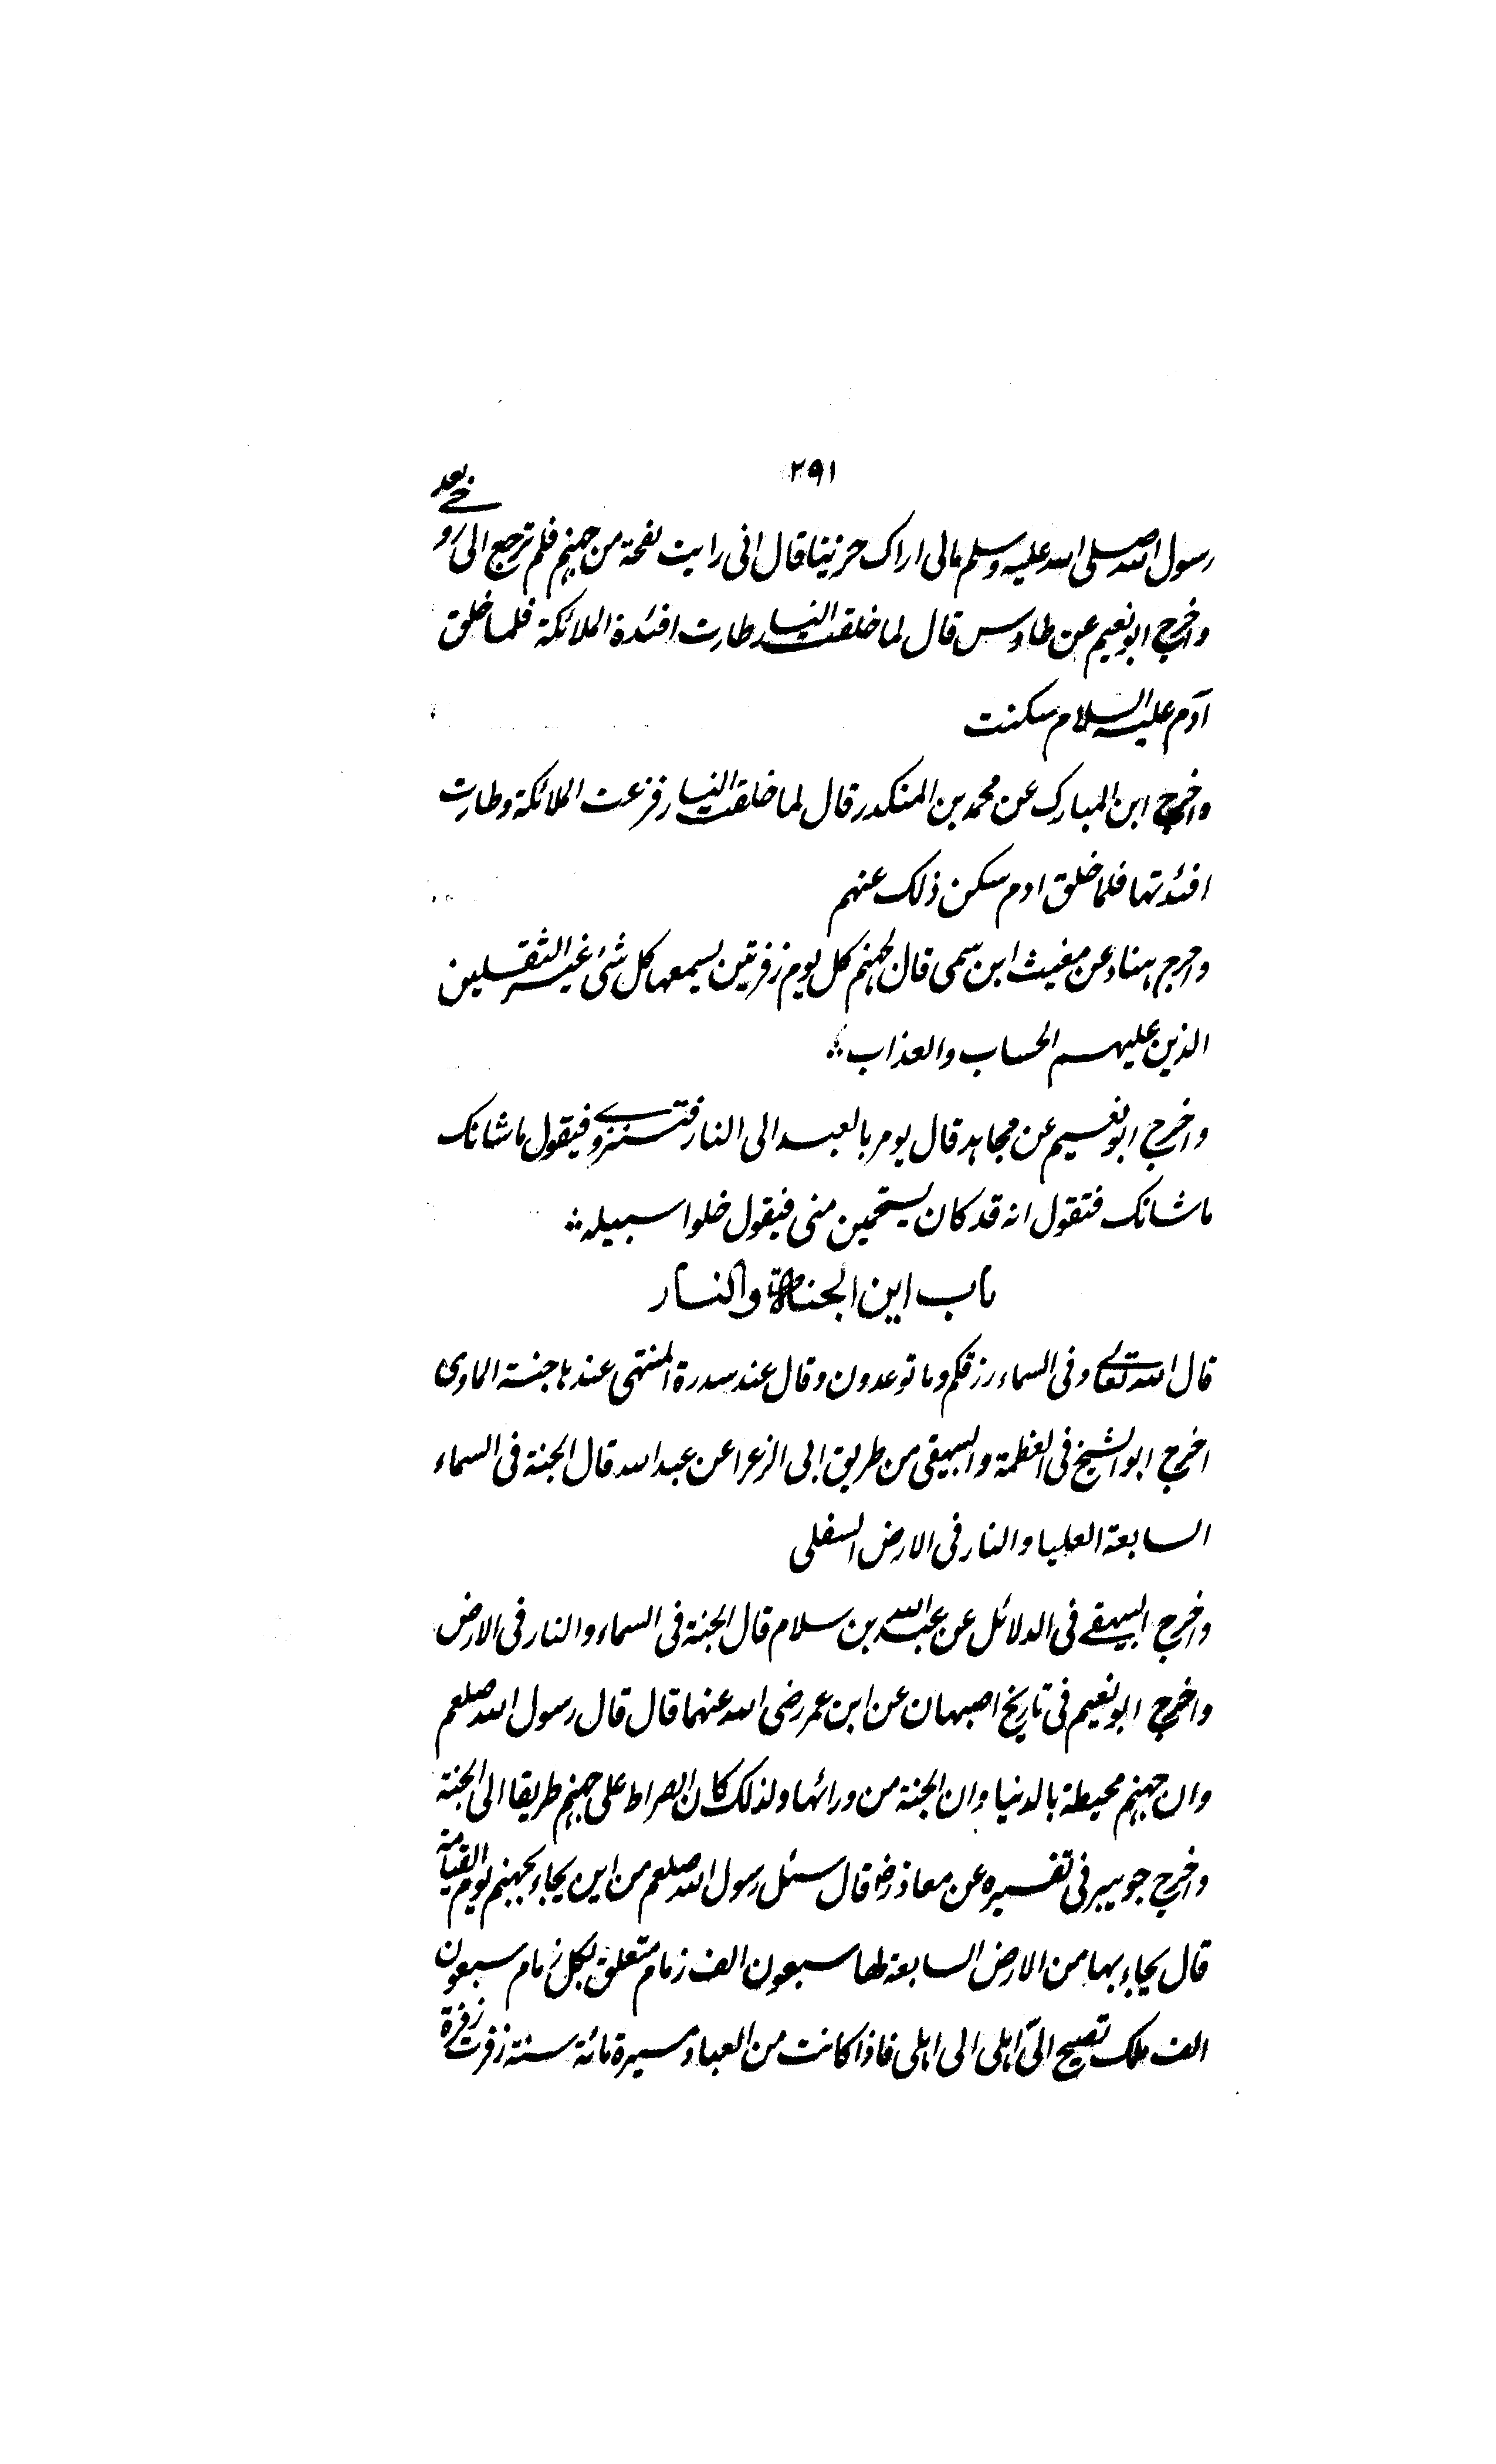 ٢٩١
رسول الله صلى الله عليه وسلم مالى اراك حزينا قال انى رايت نفحة من جهنم فلم ترجع الى رو
حى بعد
واخرج ابو نعيم عن طاوس قال لما خلقت النار طارت افئدة الملائكة فلما خلق
آدم عليه السلام سكنت
واخرج ابن المبارك عن محمد بن المنكدر قال لما خلقت النار فزعت الملائكة وطارت
افئدتها فلما خلق ادم سكن ذلك عنهم
واخرج هناد عن مغيث ابن سمى قال لجهنم كل يوم زفرتين يسمعها كل شئ غير الثقلين
الذين عليهم الحساب والعذاب
واخرج ابو نعيم عن مجاهد قال يومر بالعبد الى النار فتنزوى فيقول ما شانك
ما شانك فتقول انه قد كان يستجير منى فيقول خلوا سبيله
باب اين الجنة والنار
قال الله تعالى وفى السماء رزقكم وما توعدون وقال عند سدرة المنتهى عندها جنة الماوى
اخرج ابو الشيخ فى العظمة والبيهقى من طريق ابى الزعرا عن عبد الله قال الجنة فى السماء
السابعة العليا والنار فى الارض السفلى
واخرج البيهقى فى الدلائل عن عبد الله بن سلام قال الجنة فى السماء والنار فى الارض
واخرج ابو نعيم فى تاريخ اصبهان عن ابن عمر رضى الله عنهما قال قال رسول الله صلعم
وان جهنم محيطة بالدنيا وان الجنة من ورائها ولذلك كان الصراط على جهنم طريقا الى الجنة
واخرج جويبر فى تفسيره عن معاذ رض قال سئل رسول الله صلعم من اين يجاء بجهنم يوم القيامة
قال يجاء بها من الارض السابعة لها سبعون الف زمام متعلق بكل زمام سبعون
الف ملك تصيح الىّ اهلى الى اهلى فاذا كانت من العباد مسيرة مائة سنة زفرت زفرة